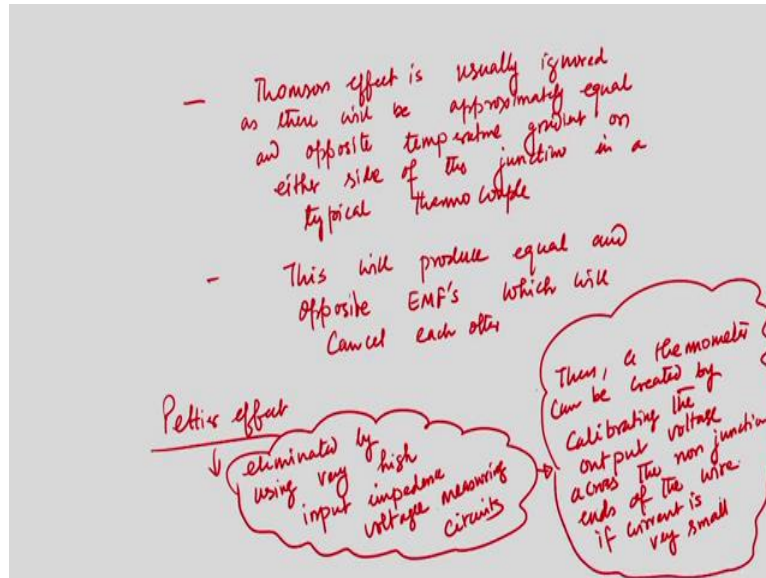 — Thomson effect is usually ignored
as there will be approximately equal
and opposite temperature gradient on
either side of the junction in a
typical thermocouple
- This will produce equal and
opposite EMF's which will
Cancel each other
Peltier effect
eliminated by
using very high
input impedence
voltage measuring
circuits
Then, a thermometer
can be created by
Calibrating the
output voltage
across the non junction
ends of the wire
if current is
very small